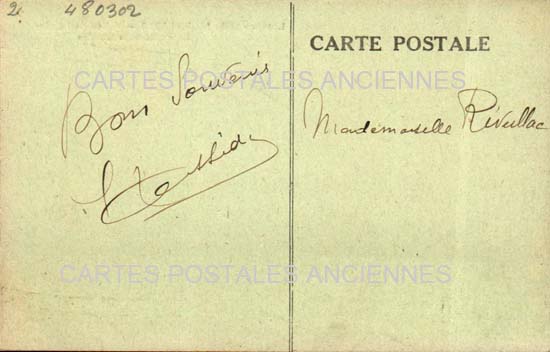 2 480302
CARTE POSTALE
CARTES POSTALES ANCIENNES
Bons Souvenirs
Mademoiselle Réveillac
CARTES POSTALES ANCIENNES